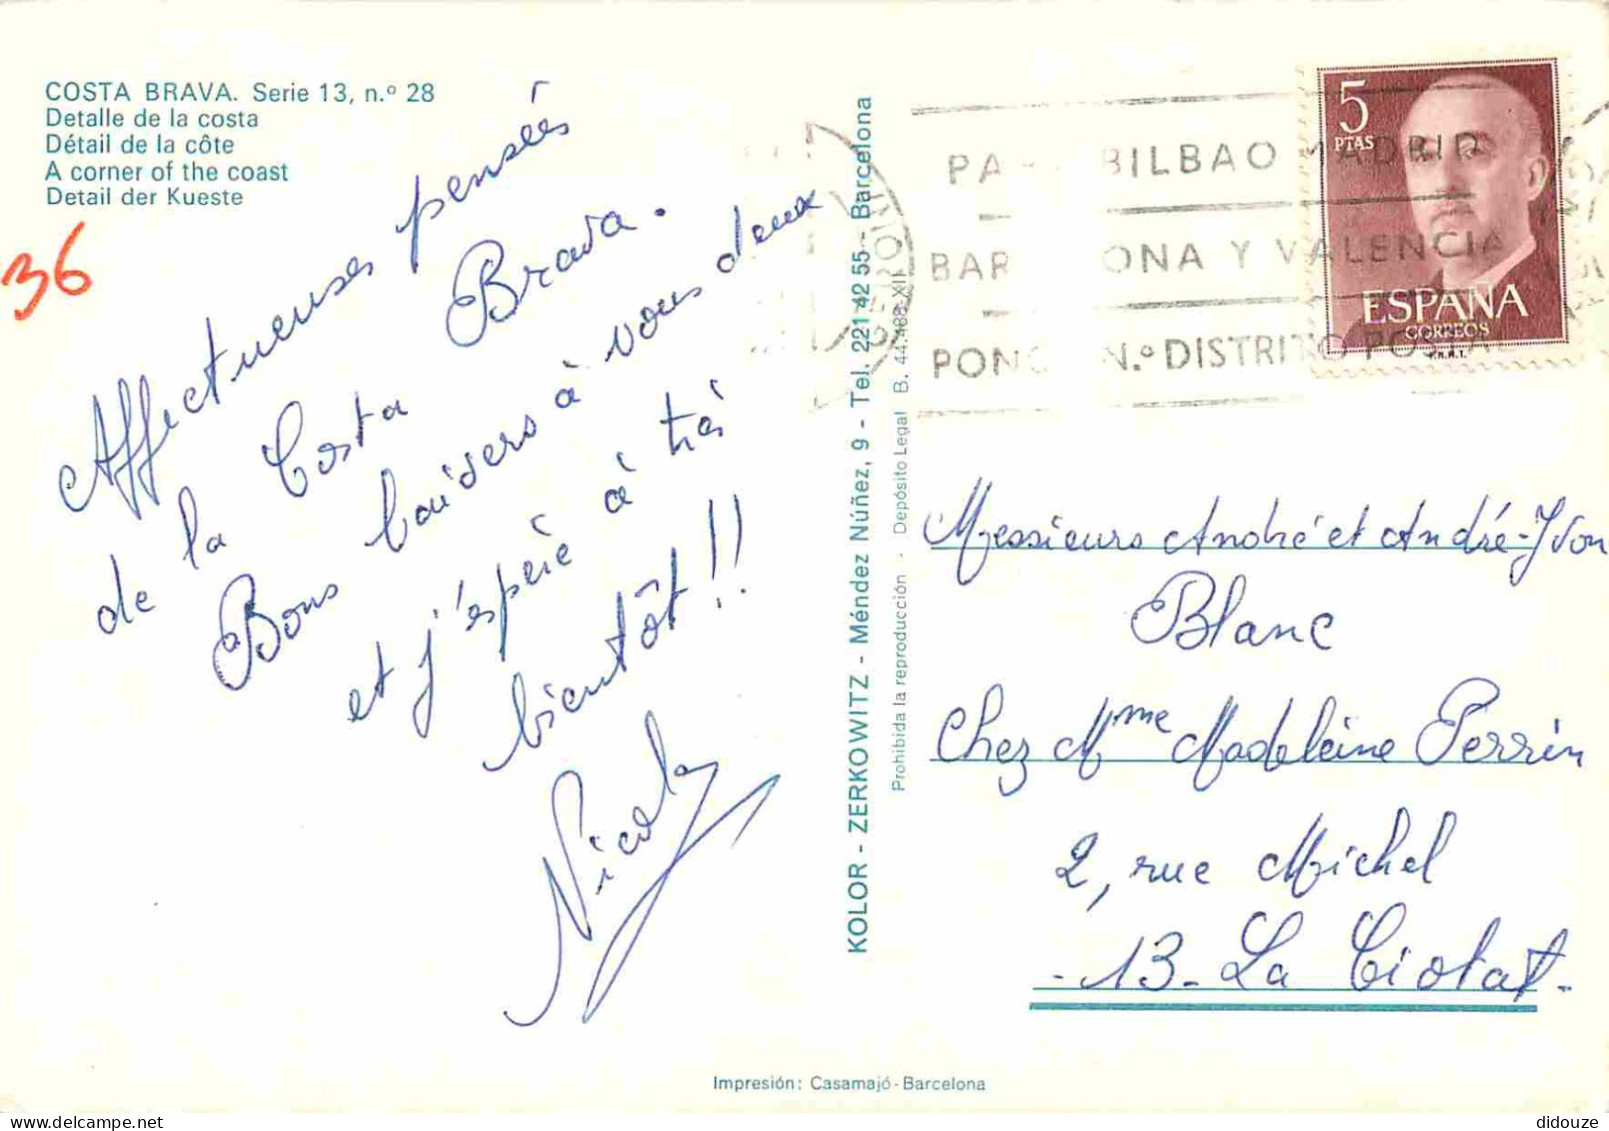 COSTA BRAVA. Serie 13, n.º 28
Detalle de la costa
Détail de la côte
A corner of the coast
Detail der Kueste
36
Affectueuses pensées
de la Costa Brava.
Bons baisers à vous deux
et j'espère à très
bientôt!!
Nicole
KOLOR - ZERKOWITZ - Méndez Núñez, 9 - Tel. 221 42 55 - Barcelona
Prohibida la reproducción - Depósito Legal B. 44.488-XII
GERONA
PA BILBAO MADRID
BAR ONA Y VALENCIA
PONG N.º DISTRITO POSTAL
5
PTAS
ESPAÑA
CORREOS
Messieurs André et André-Yvon
Blanc
Chez Mme Madeleine Perrin
2, rue Michel
-13- La Ciotat-
Impresión: Casamajó - Barcelona
didouze